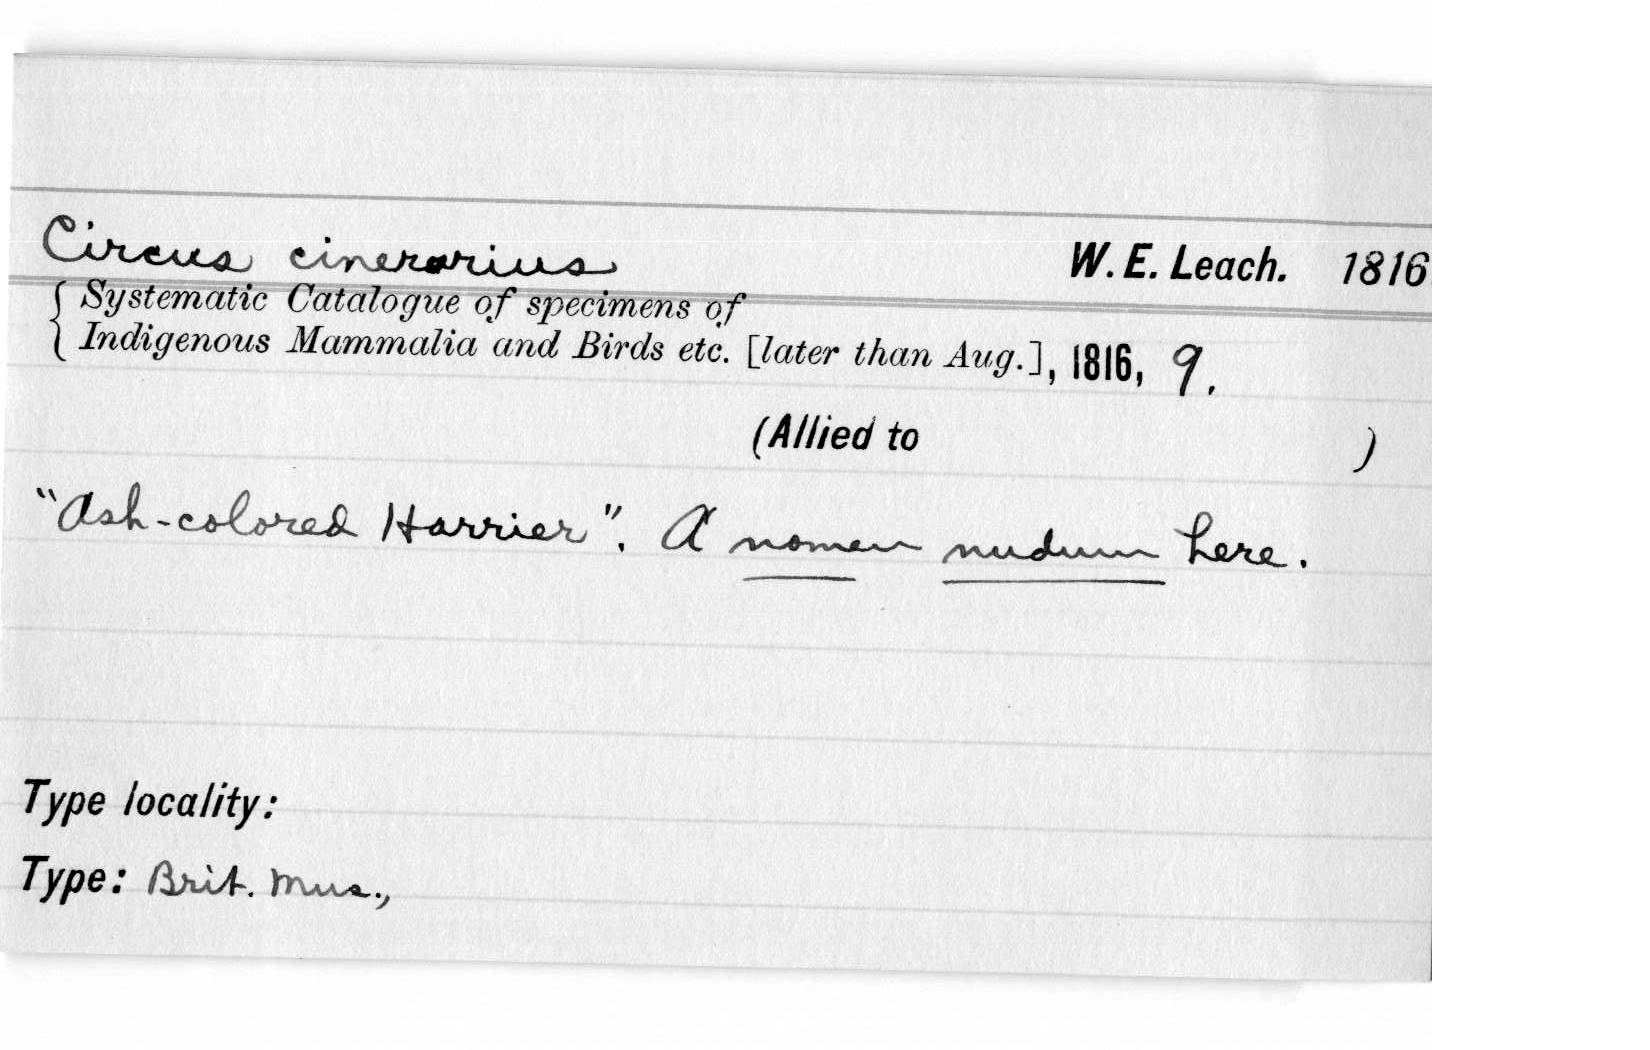 Circus cinerarius W. E. Leach. 1816
{ Systematic Catalogue of specimens of
Indigenous Mammalia and Birds etc. [later than Aug.], 1816, 9.
(Allied to )
"Ash-colored Harrier". A nomen nudum here.
Type locality:
Type: Brit. Mus.,